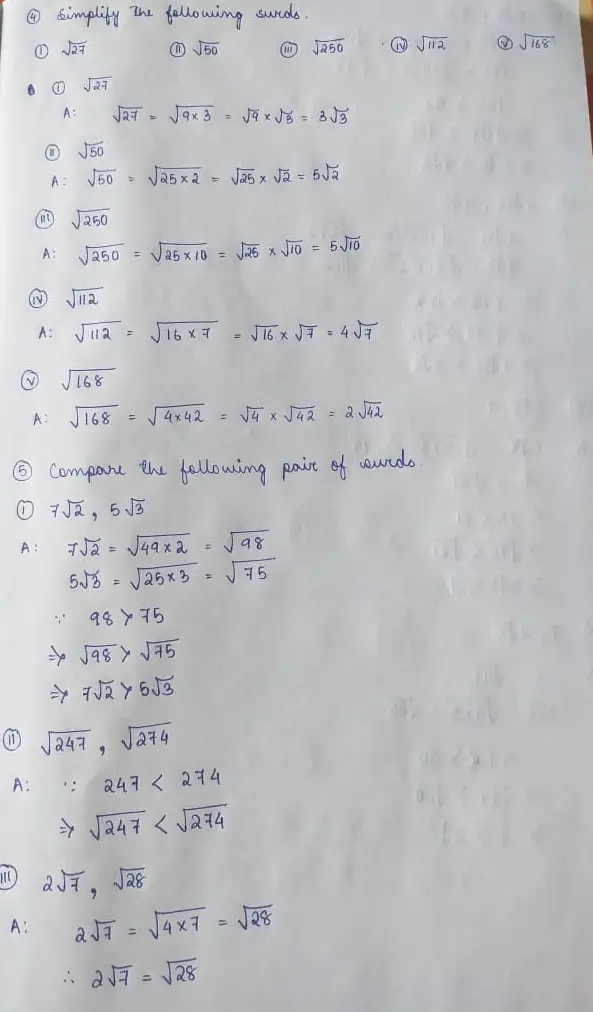 ④ Simplify the following surds.
ⓘ √27 ⓘⓘ √50 ⓘⓘⓘ √250 ⓘⓥ √112 ⓥ √168
ⓘ √27
A: √27 = √9×3 = √9 × √3 = 3√3
ⓘⓘ √50
A: √50 = √25×2 = √25 × √2 = 5√2
ⓘⓘⓘ √250
A: √250 = √25×10 = √25 × √10 = 5√10
ⓘⓥ √112
A: √112 = √16×7 = √16 × √7 = 4√7
ⓥ √168
A: √168 = √4×42 = √4 × √42 = 2√42
⑤ Compare the following pair of surds.
ⓘ 7√2, 5√3
A: 7√2 = √49×2 = √98
5√3 = √25×3 = √75
∵ 98 > 75
⇒ √98 > √75
⇒ 7√2 > 5√3
ⓘⓘ √247, √274
A: ∵ 247 < 274
⇒ √247 < √274
ⓘⓘⓘ 2√7, √28
A: 2√7 = √4×7 = √28
∴ 2√7 = √28